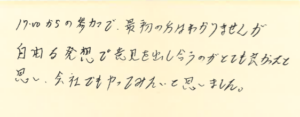 17:00からの参加で、最初の方はわかりませんが
自由な発想で意見を出し合うのがとても良かったと
思い、会社でもやってみたいと思いました。